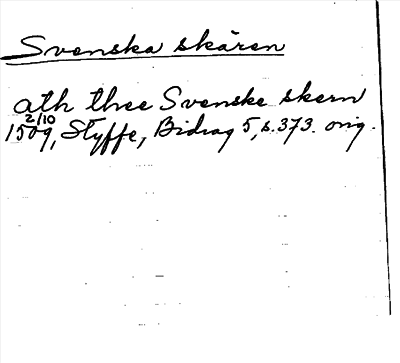 Svenska skären
ath thee Svenske skern
2/10
1509, Styffe, Bidrag 5, s. 373. orig.